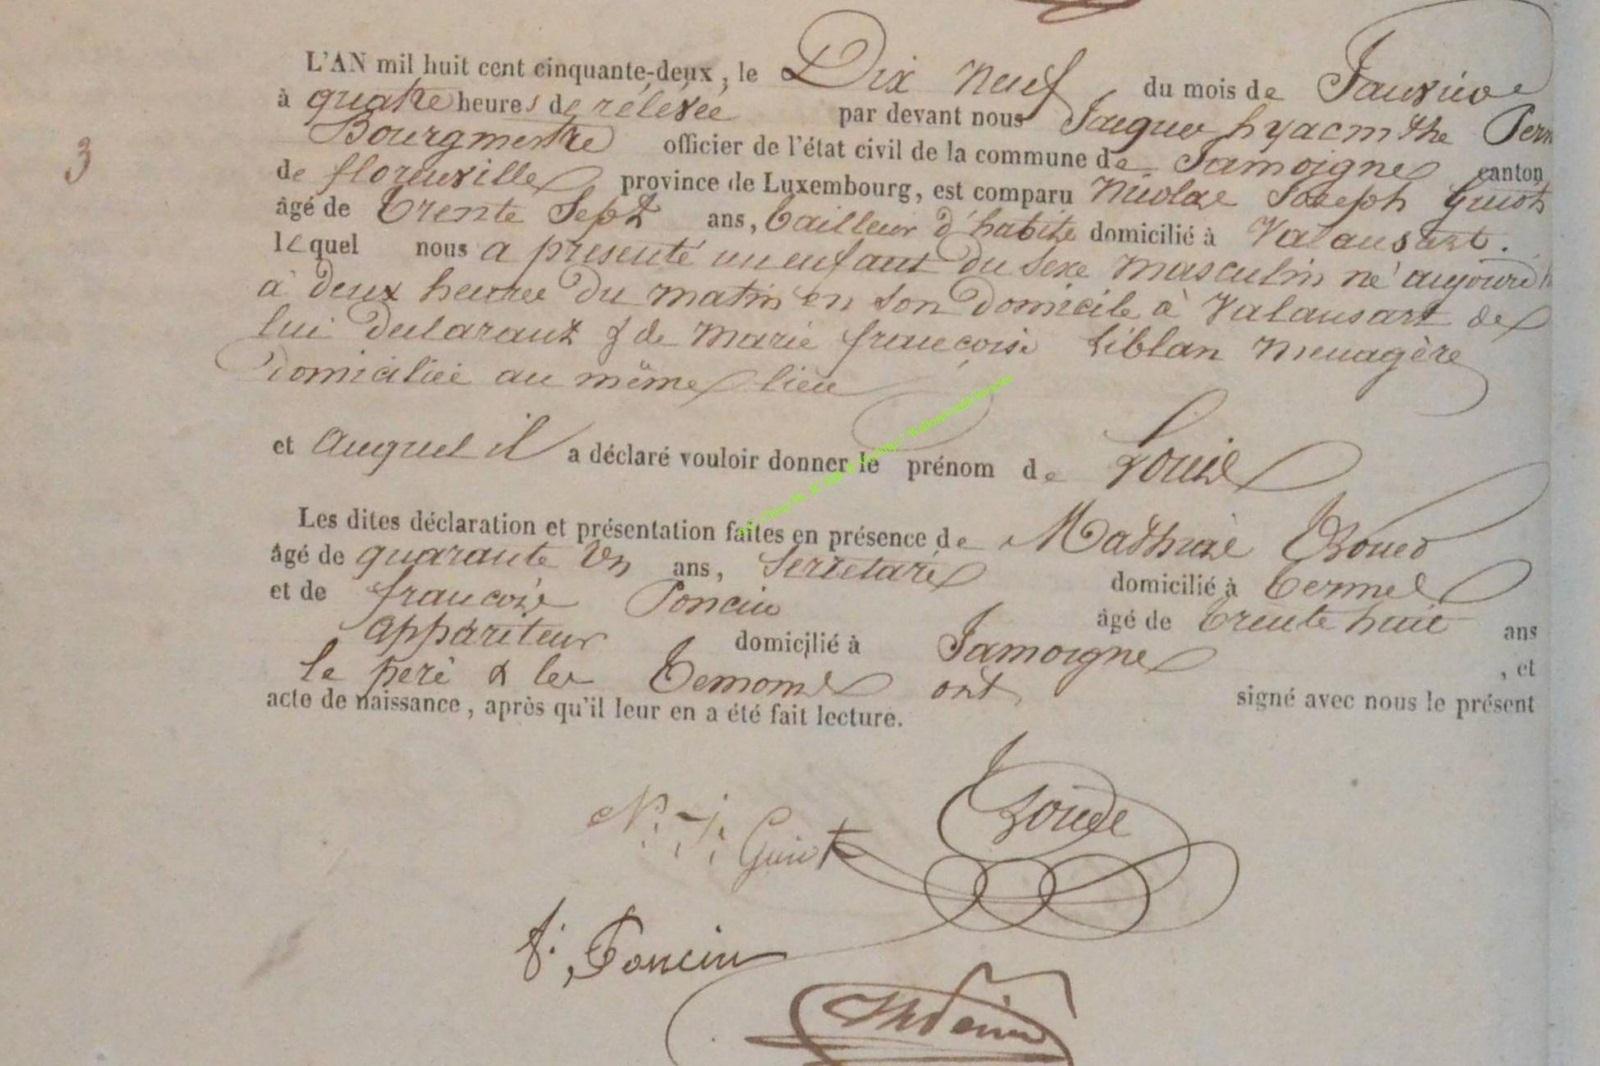 L'AN mil huit cent cinquante-deux, le Dix neuf du mois de Janvier
à quatre heures de relevée par devant nous Jacques hyacinthe Pern
Bourgmestre officier de l'état civil de la commune de Jamoigne canton
3
de florenville province de Luxembourg, est comparu Nicolas Joseph Guiot
âgé de trente Sept ans, tailleur d'habits domicilié à Valansart.
lequel nous a présenté un enfant du sexe masculin né aujourd'h
à deux heures du matin en son domicile à Valansart de
lui déclarant & de Marie françoise Liblan menagère
domiciliée au même lieu
et auquel il a déclaré vouloir donner le prénom de Louis
Les dites déclaration et présentation faites en présence de Mathias
âgé de quarante un ans, Secretaire domicilié à termes
et de françois Poncin âgé de trente huit ans
appariteur domicilié à Jamoigne , et
le père & les temoins ont signé avec nous le présent
acte de naissance, après qu'il leur en a été fait lecture.
N. J. Guiot
f. Poncin